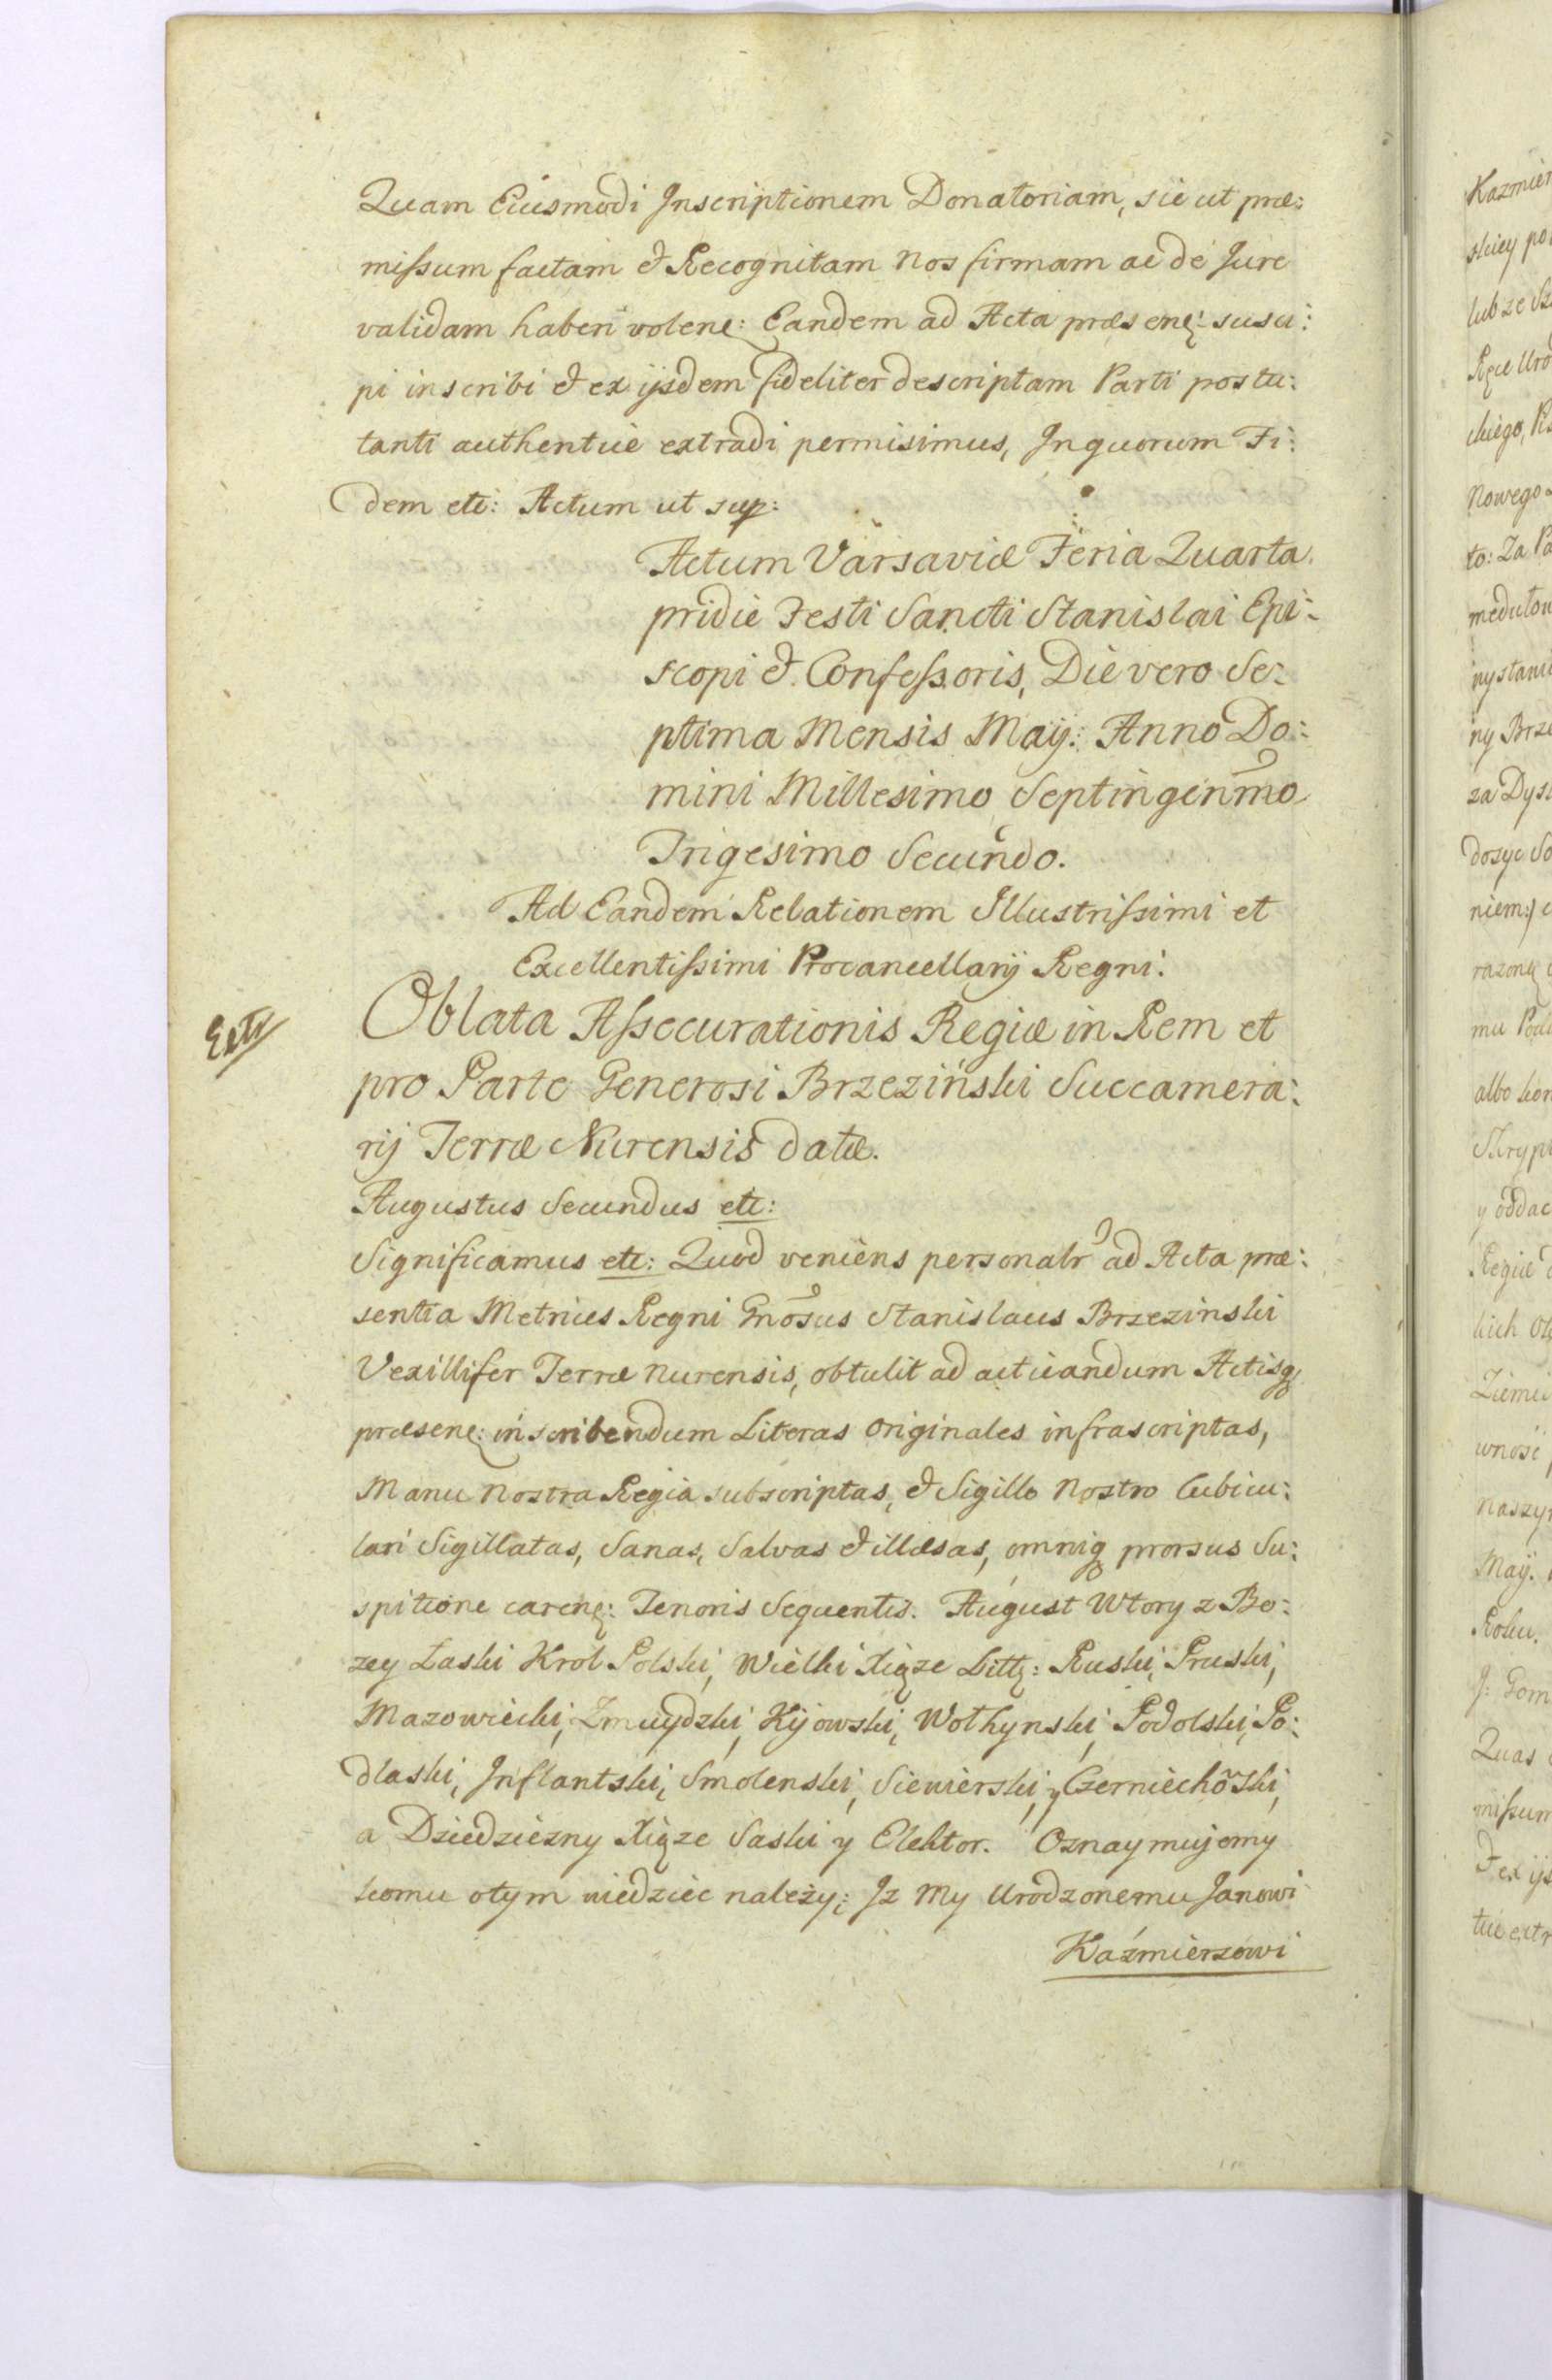 Quam Eiusmodi Inscriptionem Donatoriam, sic ut præ:
mißum factam & Recognitam nos firmam ac de Jure
validam haberi volenę: Eandem ad Acta præsenę: susci:
pi inscribi & ex ijsdem fideliter descriptam Parti postu:
lanti authentice extradi permisimus, In quorum Fi:
dem etc: Actum ut sup:
Actum Varsaviæ Feria Quarta
pridie Festi Sancti Stanislai Epi:
scopi & Confeßoris, Die vero Se:
ptima Mensis Maij: Anno Do:
mini Millesimo Septingenmo
Trigesimo Secundo.
Ad Eandem Relationem Illustrißimi et
Excellentißimi Procancellarij Regni:
Extr
Oblata Aßecurationis Regiæ in Rem et
pro Parte Generosi Brzeziński Succamera:
rij Terræ Nurensis datæ.
Augustus Secundus etc:
Significamus etc: Quod veniens personalr ad Acta præ:
sentia Metrices Regni Gnosus Stanislaus Brzezinski
Vexillifer Terræ Nurensis, obtulit ad acticandum Actisq
præsenę: inscribendum Literas Originales infrascriptas,
Manu Nostra Regia subscriptas, & Sigillo Nostro Cubicu:
lari Sigillatas, Sanas, Salvas & illæsas, omniq prorsus Su:
spitione carenę: Tenoris Sequentis. August Wtory z Bo:
zey Łaski Krol Polski, Wielki Xiąze Littę: Ruski, Pruski,
Mazowiecki, Zmuydzki, Kijowski, Wołhynski, Podolski, Po:
dlaski, Inflantski, Smolenski, Siewierski, y Czerniechoski,
a Dziedziczny Xiąze Saski y Elektor. Oznaymujemy
komu o tym wiedziec należy; Iz My Urodzonemu Janowi
Kaźmierzowi